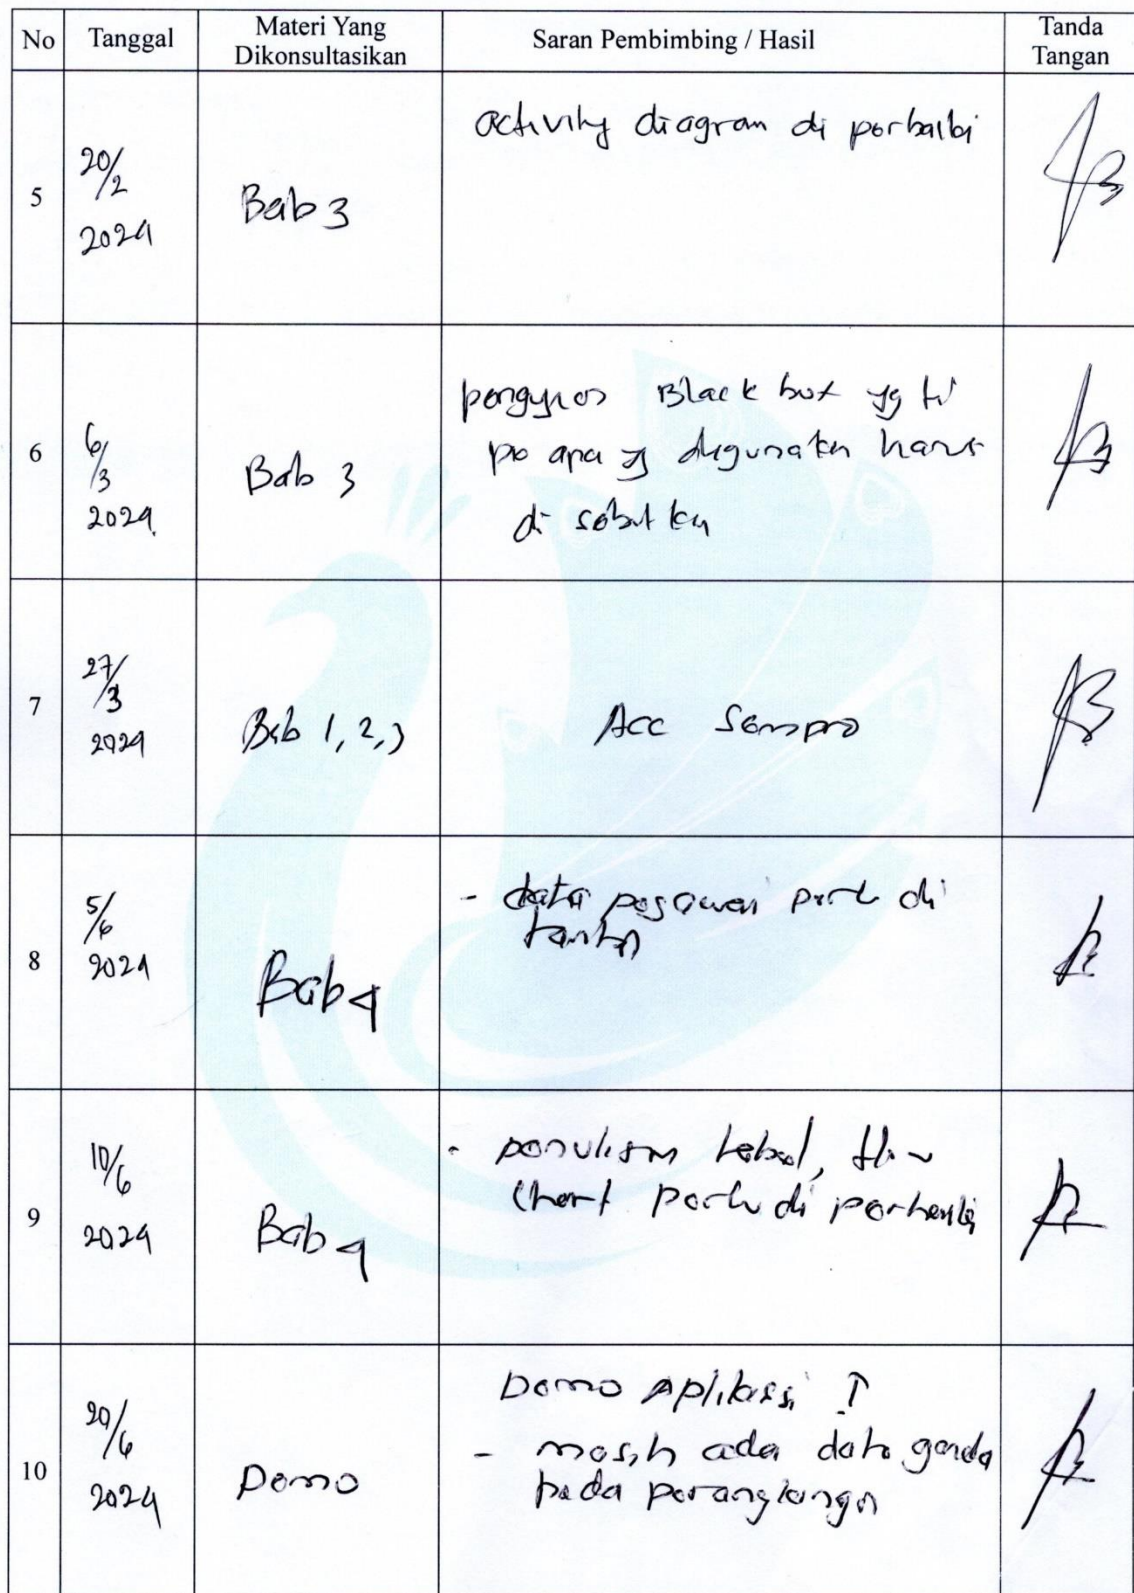 No Tanggal Materi Yang Dikonsultasikan Saran Pembimbing / Hasil Tanda Tangan
5 20/2 2024 Bab 3 activity diagram di perbaiki
6 6/3 2024 Bab 3 Black box yg ti
pe apa yg digunakan harus
di sebutkan
7 27/3 2024 Bab 1, 2, 3 Acc Sempro
8 5/6 2024 Bab 4 - data pegawai perlu di
9 10/6 2024 Bab 4 - penulisan tabel, flow
chart perlu di perbaiki
10 20/6 2024 Demo Demo Aplikasi I
- masih ada data ganda
pada